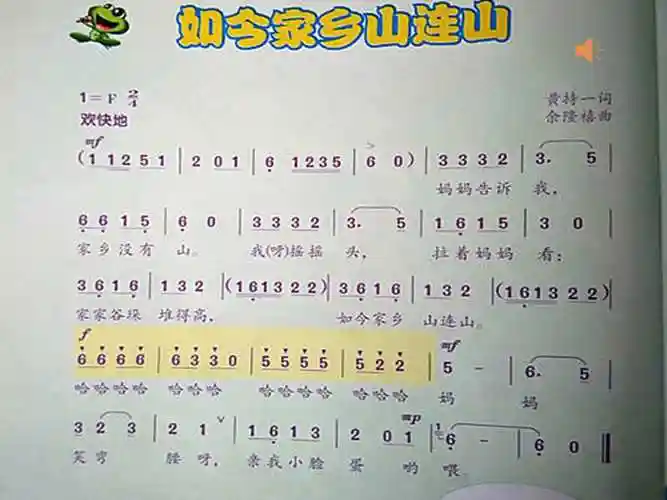 如今家乡山连山
1=F 2/4
黄持一词
欢快地
余隆禧曲
mf
(1 1 2 5 1 | 2 0 1 | 6 1 2 3 5 | 6 0) | 3 3 3 2 | 3. 5 |
妈妈告诉 我，
6 6 1 5 | 6 0 | 3 3 3 2 | 3. 5 | 1 6 1 5 | 3 0 |
家乡没有 山。 我(呀)摇摇 头， 拉着妈妈 看：
3 6 1 6 | 1 3 2 | (1 6 1 3 2 2) | 3 6 1 6 | 1 3 2 | (1 6 1 3 2 2) |
家家谷垛 堆得高， 如今家乡 山连山。
f mf
6 6 6 6 | 6 3 3 0 | 5 5 5 5 | 5 2 2 | 5 - | 6. 5 |
哈哈哈哈 哈哈哈 哈哈哈哈 哈哈哈 妈 妈
mp
3 2 3 | 2 1 | 1 6 1 3 | 2 0 1 | 6 - | 6 0 ‖
笑弯 腰呀， 亲我小脸 蛋 哟 喂。